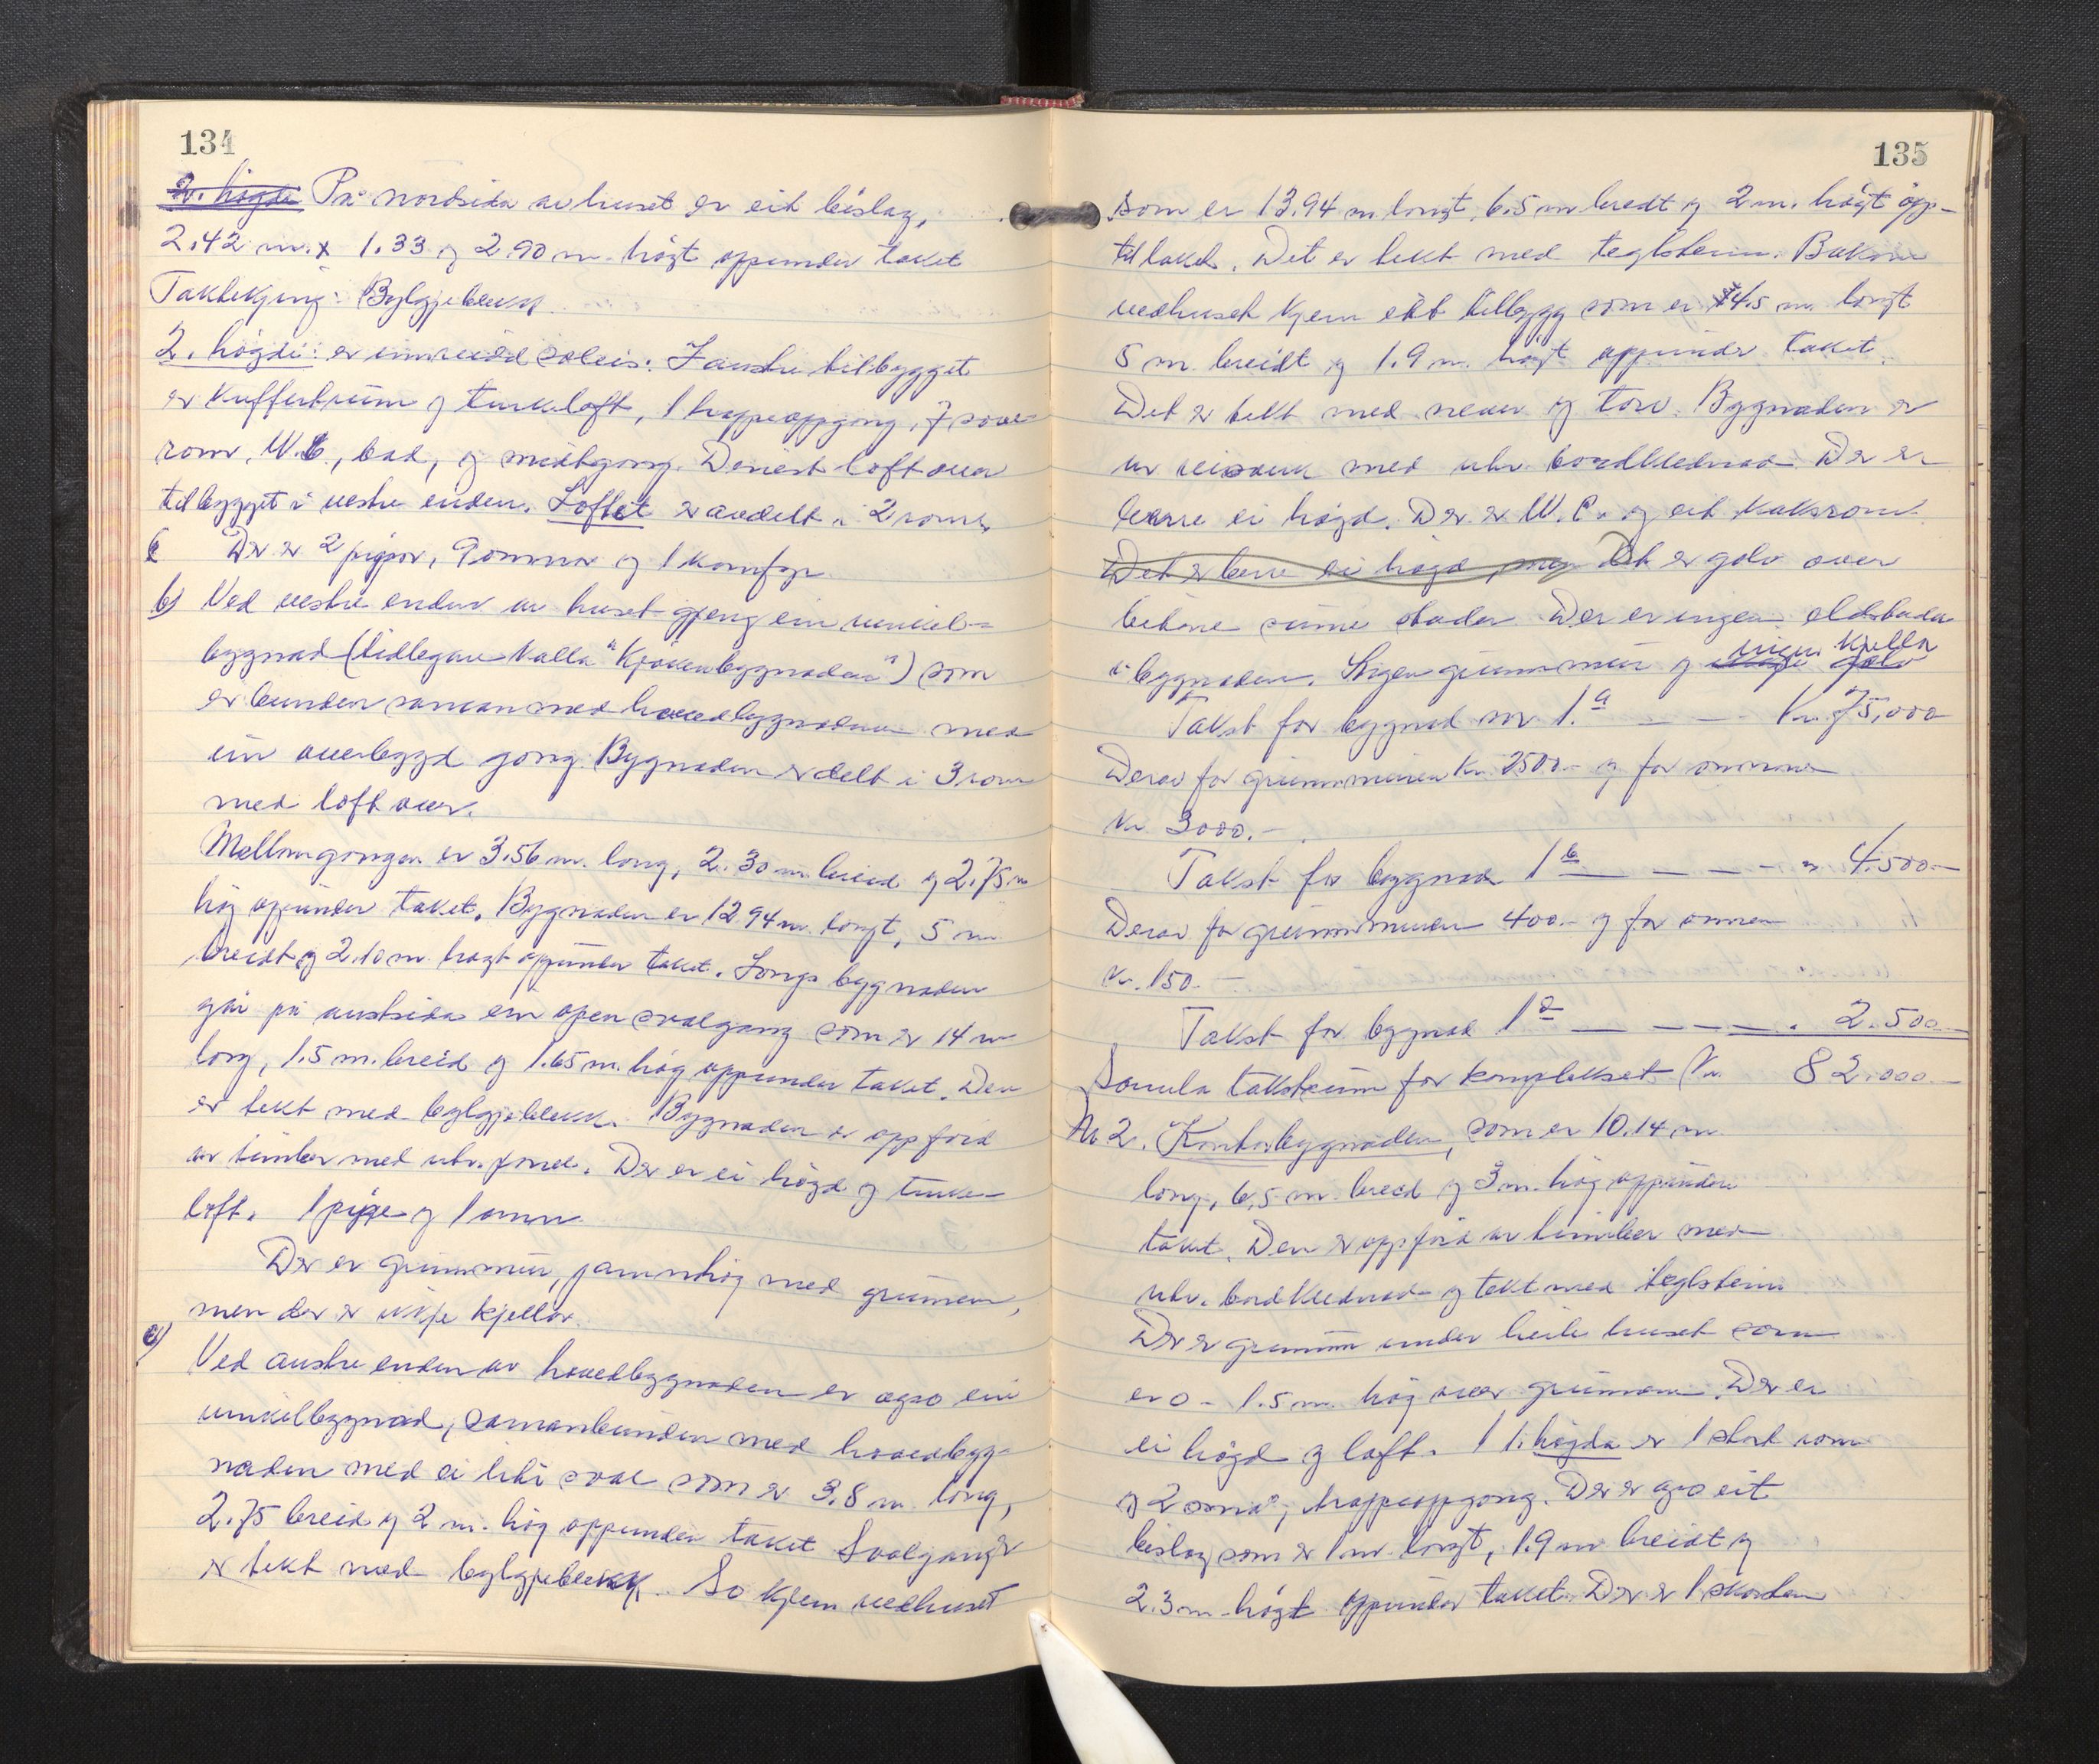 134
2. høgda På nordsida av huset er eit bislag,
2.42 m. x 1.33 og 2.90 m. högt oppunder taket
Taktekking: Bylgjeblekk
2. högdi: er innreidd soleis: I austre tilbygget
er kuffertrum og turkeloft, 1 trappeoppgong, 7 sove-
rom, W.C., bad, og midtgong. Dernest loft over
tilbygget i vestre enden. Loftet er avdelt i 2 romr.
Der er 2 pipor, 9 omnar og 1 komfyr.
b) Ved vestre enden av huset gjeng ein vinkel-
bygnad (tidlegare kalla "Kjökenbygnaden") som
er bunden saman med hovedbygnaden med
ein overbygd gong. Bygnaden er delt i 3 rom
med loft over.
Mellomgongen er 3.56 m. long, 2.30 m. breid og 2.75 m
høg oppunder taket. Bygnaden er 12.94 m. longt, 5 m
breidt og 2.10 m. høgt oppunder taket. Longs bygnaden
går på austsida ein open svalgang som er 14 m
long, 1.5 m. breid og 1.65 m. høg oppunder taket. Den
er tekt med bylgjeblekk. Bygnaden er oppförd
av timber med utv. panel. Der er ei högd og turke-
loft. 1 pipe og 1 omn
Der er grunnmur, jamnhøg med grunnen,
men der er ikkje kjellar.
c) Ved austre enden av hovedbygnaden er ogso ein
vinkelbygnad, samanbunden med hovedbygg-
naden med ei liti sval som er 3.8 m. long,
2.75 breid og 2 m. høg oppunder taket Svalgangen
er tekt med bylgjeblekk. So kjem vedhuset
135
som er 13.94 m longt, 6.5 m bredt og 2 m. högt opp-
til taket. Det er tekt med teglstein. Bakom
vedhuset kjem eit tilbygg som er 4.5 m. longt
5 m. breidt og 1.9 m. högt oppunder taket.
Det er tekt med never og torv. Bygnaden er
av reisverk med utv. bordklednad. Der er
berre ei høgd. Der er W.C. og eit kaksrom.
Det er berre ei høgd, men Det er golv over
bitane sume stader. Der er ingen eldstader
i bygnaden. Ingen grunnmur og ingen kjellar
Takst for bygnad nr 1.a — — Kr. 75,000
Derav for grunnmuren kr. 2500.- og for omnane
kr. 3000.-
Takst for bygnad 1 b — — — — " 4.500.—
Derav for grunnmuren 400.- og for omnen
kr. 150.—
Takst for bygnad 1 c — — — — . 2.500.—
Samla takstsum for komplekset Kr. 82.000.—
Nr 2. Kontorbygnaden, som er 10.14 m
long, 6,5 m. breid og 3 m. høg oppunder
taket. Den er oppförd av timber med
utv. bordklednad og tekt med teglstein.
Der er grunnmur under heile huset som
er 0 - 1.5 m. høg over grunnen. Der er
ei högd og loft. I 1. högda er 1 stort rom
og 2 små, trappeoppgong. Der er ogso eit
bislag som er 1 m. longt, 1.9 m breidt og
2.3 m. högt oppunder taket. Der er 1 skorstein